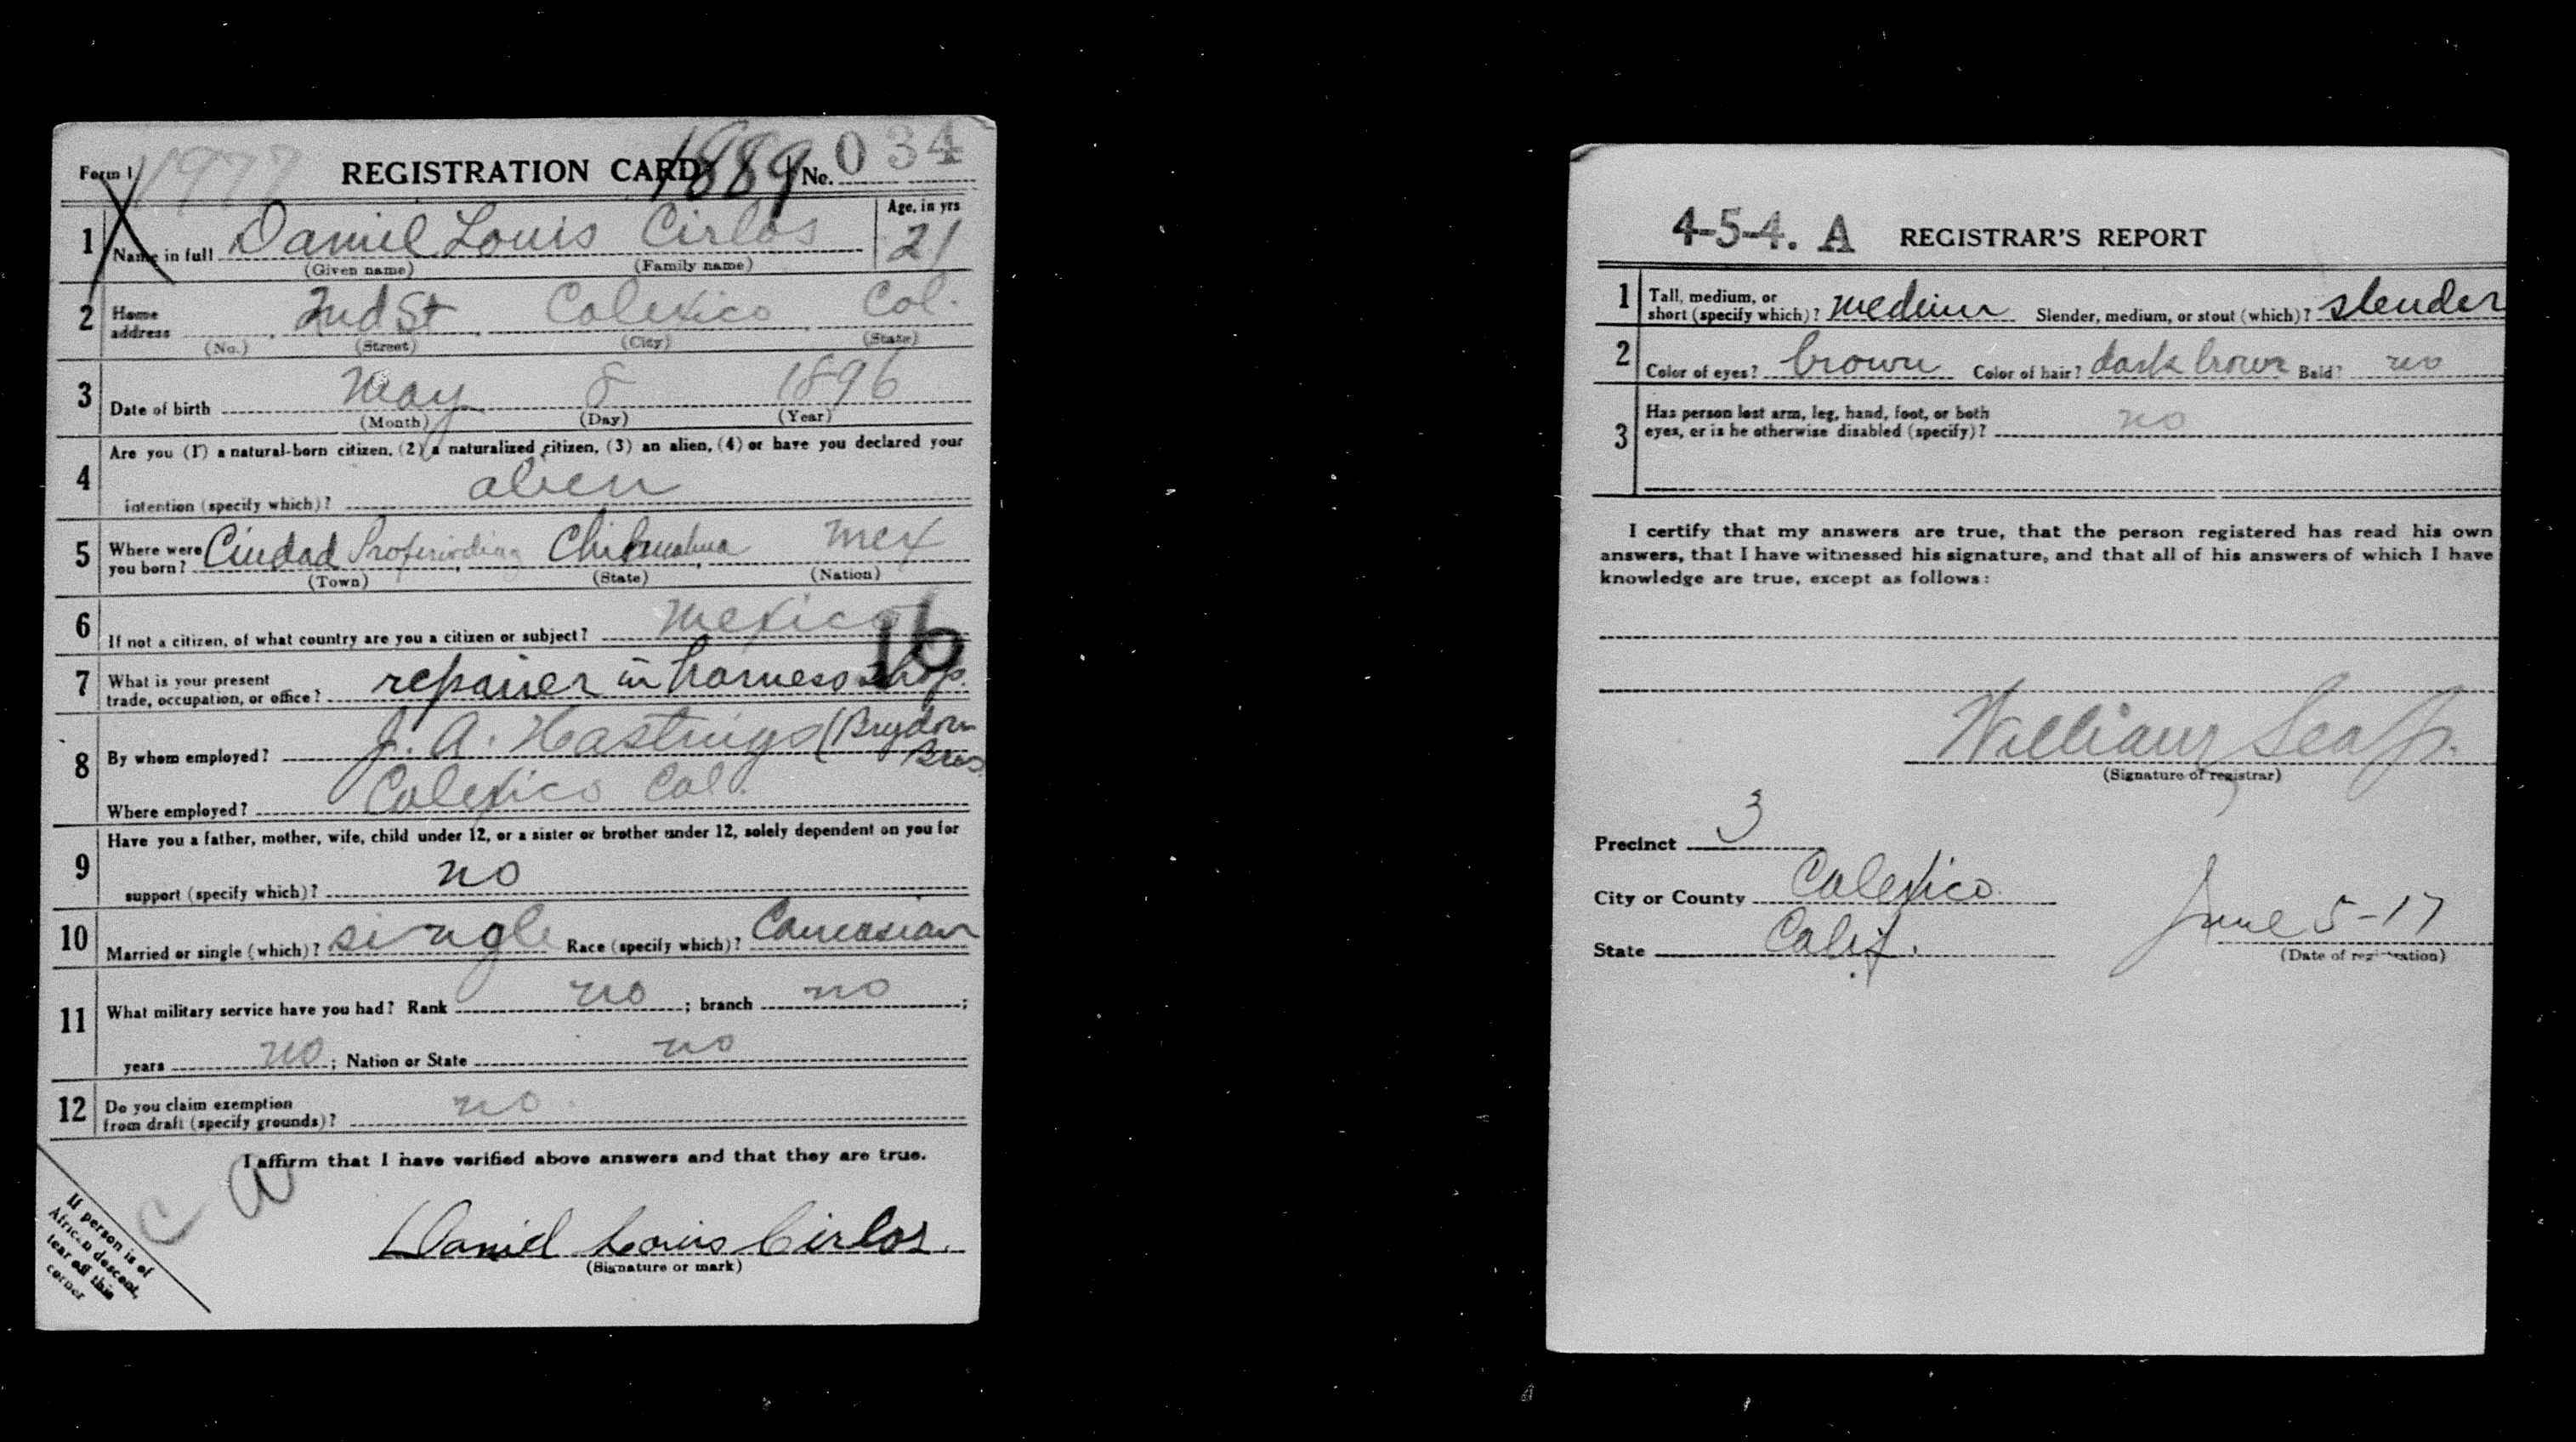 Form 1 1977 REGISTRATION CARD 1889 No. 034
1 Name in full Daniel Louis Cirlos
(Given name) (Family name)
Age, in yrs
21
2 Home address 2nd St Calexico Cal.
(No.) (Street) (City) (State)
3 Date of birth May 8 1896
(Month) (Day) (Year)
4 Are you (1) a natural-born citizen, (2) a naturalized citizen, (3) an alien, (4) or have you declared your
intention (specify which)? alien
5 Where were you born? Ciudad Chihuahua Mex
(Town) (State) (Nation)
6 If not a citizen, of what country are you a citizen or subject? Mexico
16
7 What is your present
trade, occupation, or office? repairer in harness shop.
8 By whom employed? J. A. Hastings (Brydon
Bros.
Where employed? Calexico Cal.
9 Have you a father, mother, wife, child under 12, or a sister or brother under 12, solely dependent on you for
support (specify which)? no
10 Married or single (which)? single Race (specify which)? Caucasian
11 What military service have you had? Rank no ; branch no ;
years no ; Nation or State no
12 Do you claim exemption
from draft (specify grounds)? no
I affirm that I have verified above answers and that they are true.
Daniel Louis Cirlos.
(Signature or mark)
If person is of
African descent,
tear off this
corner
4-5-4. A REGISTRAR'S REPORT
1 Tall, medium, or
short (specify which)? medium Slender, medium, or stout (which)? slender
2 Color of eyes? brown Color of hair? dark brown Bald? no
3 Has person lost arm, leg, hand, foot, or both
eyes, or is he otherwise disabled (specify)? no
I certify that my answers are true, that the person registered has read his own
answers, that I have witnessed his signature, and that all of his answers of which I have
knowledge are true, except as follows:
William
(Signature of registrar)
Precinct 3
City or County Calexico.
State Calif.
June 5-17
(Date of registration)